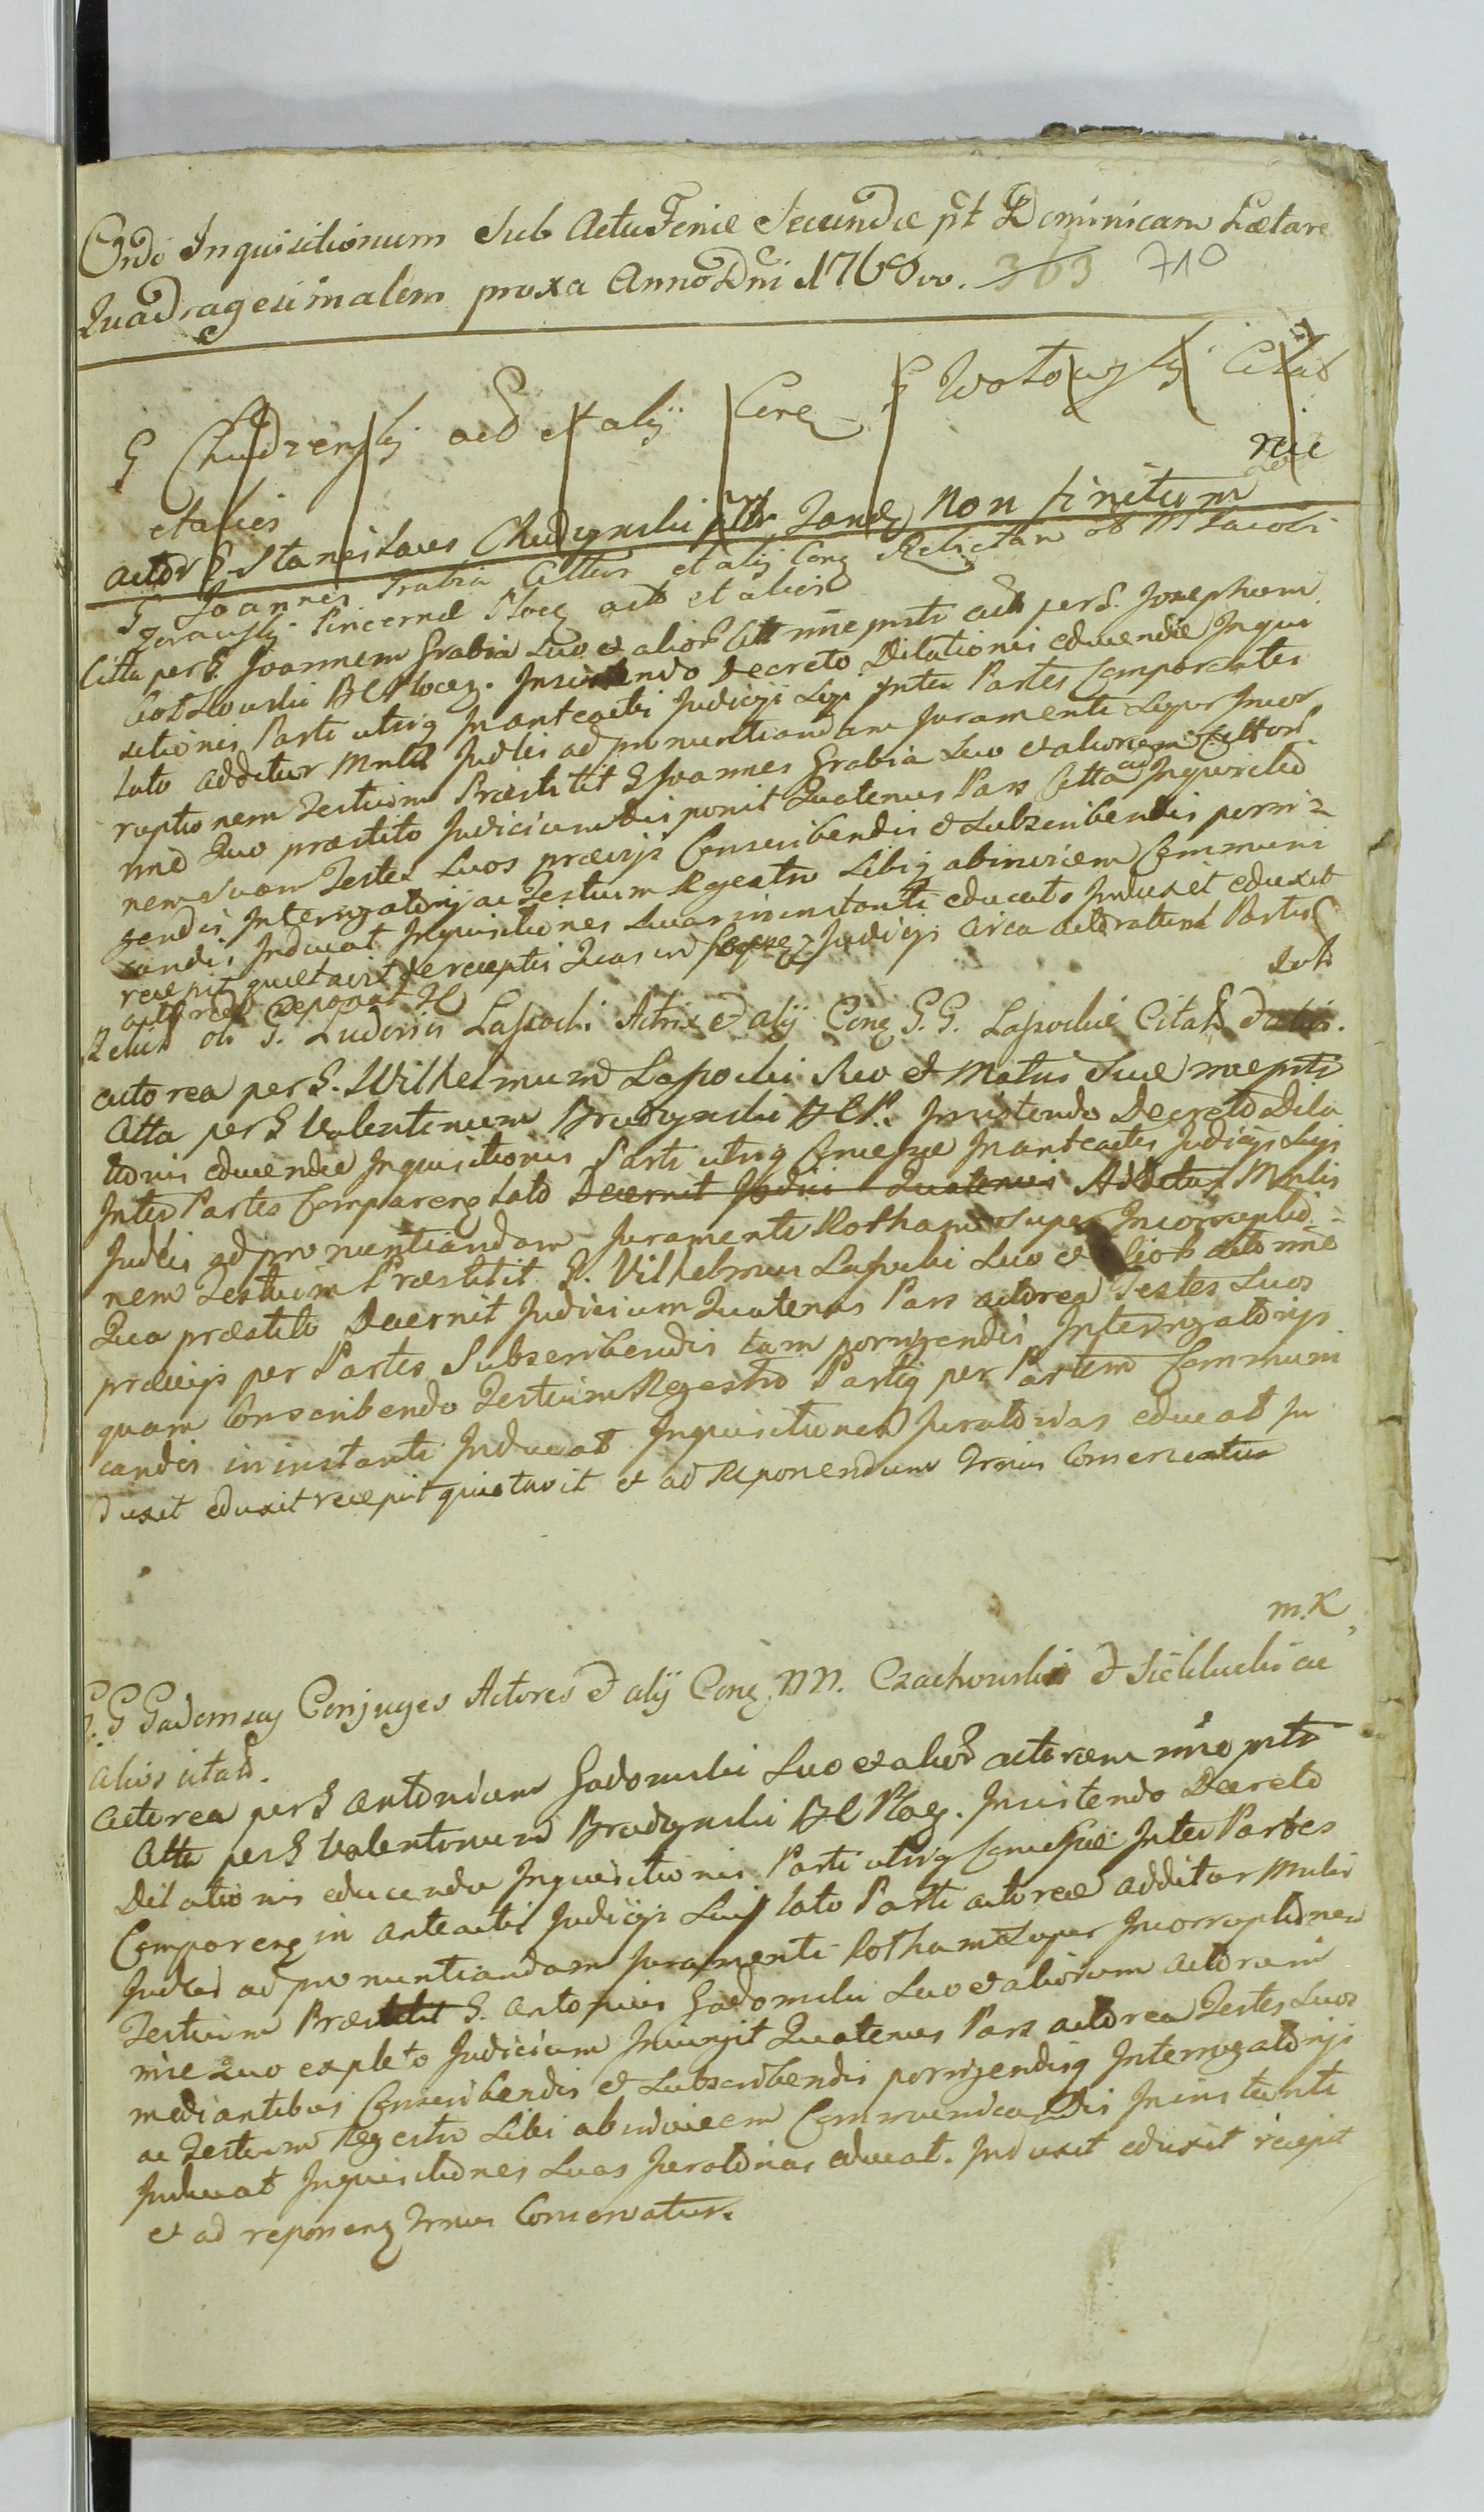 Ordo Inquisitionum Sub Actu Feriæ Secundæ pt Dominicam Lætare
Quadragesimalem proxa Anno Dni 1768vo. 363 710
G Chudzeńskÿ act et alÿ Conq G Wotow skÿ Citat
et alios
rcie
actor G Stanislaus Chudzynski Non finitum
G Joannes Grabia Cittus et alij Conq Relictam ob M Jacobi
Pincernæ Plocz act et alios
Citta per G. Joannem Grabia Suo et alior Citt nne psti act per G. Josephum
Gotkowski BCPlocz. Insistendo Decreto Dilationis educendæ Inqui
sitionis Parti utriq In anteactis Judicÿ Sui Inter Partes Comparentes
lato additur Mnlis Judlis ad pronuntiandam Juramenti Super Incor
ruptionem Testium Præstitit G Joannes Grabia Suo et aliorum Cittor
nne Quo præstito Judicium disponit Quatenus Pars Citta ad Inquisitio
nem Suam Testes Suos prævijs Conscribendis et Subscribendis porri=
gendis Interrogatorijs ac Testium Regestro Sibiq abinvicem Communi
candis Inducat Inquisitiones Suas in instanti educat Induxit eduxit
recepit quietavit receptis Quas in Judicÿ circa actoratum Partis
act reponat
Relict ob G. Ludovici Lassocki Actrix et alÿ Conq G.G. Lassockie Citat et alios.
actorea per G. Wilhelmum Lassocki Suo et Matris Suæ nne psti
Citta per G Valentinum Brudzynski BCP. Insistendo Decreto Dila
tionis educendæ Inquisitionis Parti utriq Concessæ In anteactis Judicÿ Sui
Inter Partes Comparenq lato Decernit Judici Quatenus Additur Mnlis
Judlis ad pronuntiandam Juramenti Rotham Super Incorruptio=
nem Testium Præstitit G. Vilhelmus Lassocki Suo et alior act nne
Quo præstito Decernit Judicium Quatenus Pars actorea Testes Suos
prævijs per Partes Subscribendis tam porrigendis Interrogatorijs
quam Conscribendo Testium Regestro Partiq per Partem Communi
candis in instanti Inducat Inquisitiones Juratorias educat In
duxit eduxit recepit quietavit et ad Reponendum Trnus Conservatur
m.K
G.G Gadomscy Conjuges Actores et alÿ Conq NN. Czachowski et Sieklucki ac
alios citat.
actorea per G Antonium Gadomski Suo et alior actorum nne psti
Citta per G Valentinum Brudzynski BC Plocz. Insistendo Decreto
Dilationis educendæ Inquisitionis Parti utriq Concessæ Inter Partes
Comparenq in anteactis Judicÿ Sui lato Parti actoreæ additur Mnlis
Judlis ad pronuntiandam Juramenti Rotham Super Incorruptionem
Testium Præstitit G. Antonius Gadomski Suo et aliorum actorum
nne Quo expleto Judicium Injungit Quatenus Pars actorea Testes Suos
mediantibus Conscribendis et Subscribendis porrigendisq Interrogatorijs
ac Testium Regestro Sibi abinvicem Communicandis In instanti
Inducat Inquisitiones Suas Juratorias educat. Induxit eduxit recepit
et ad reponenq Trnus Conservatur.